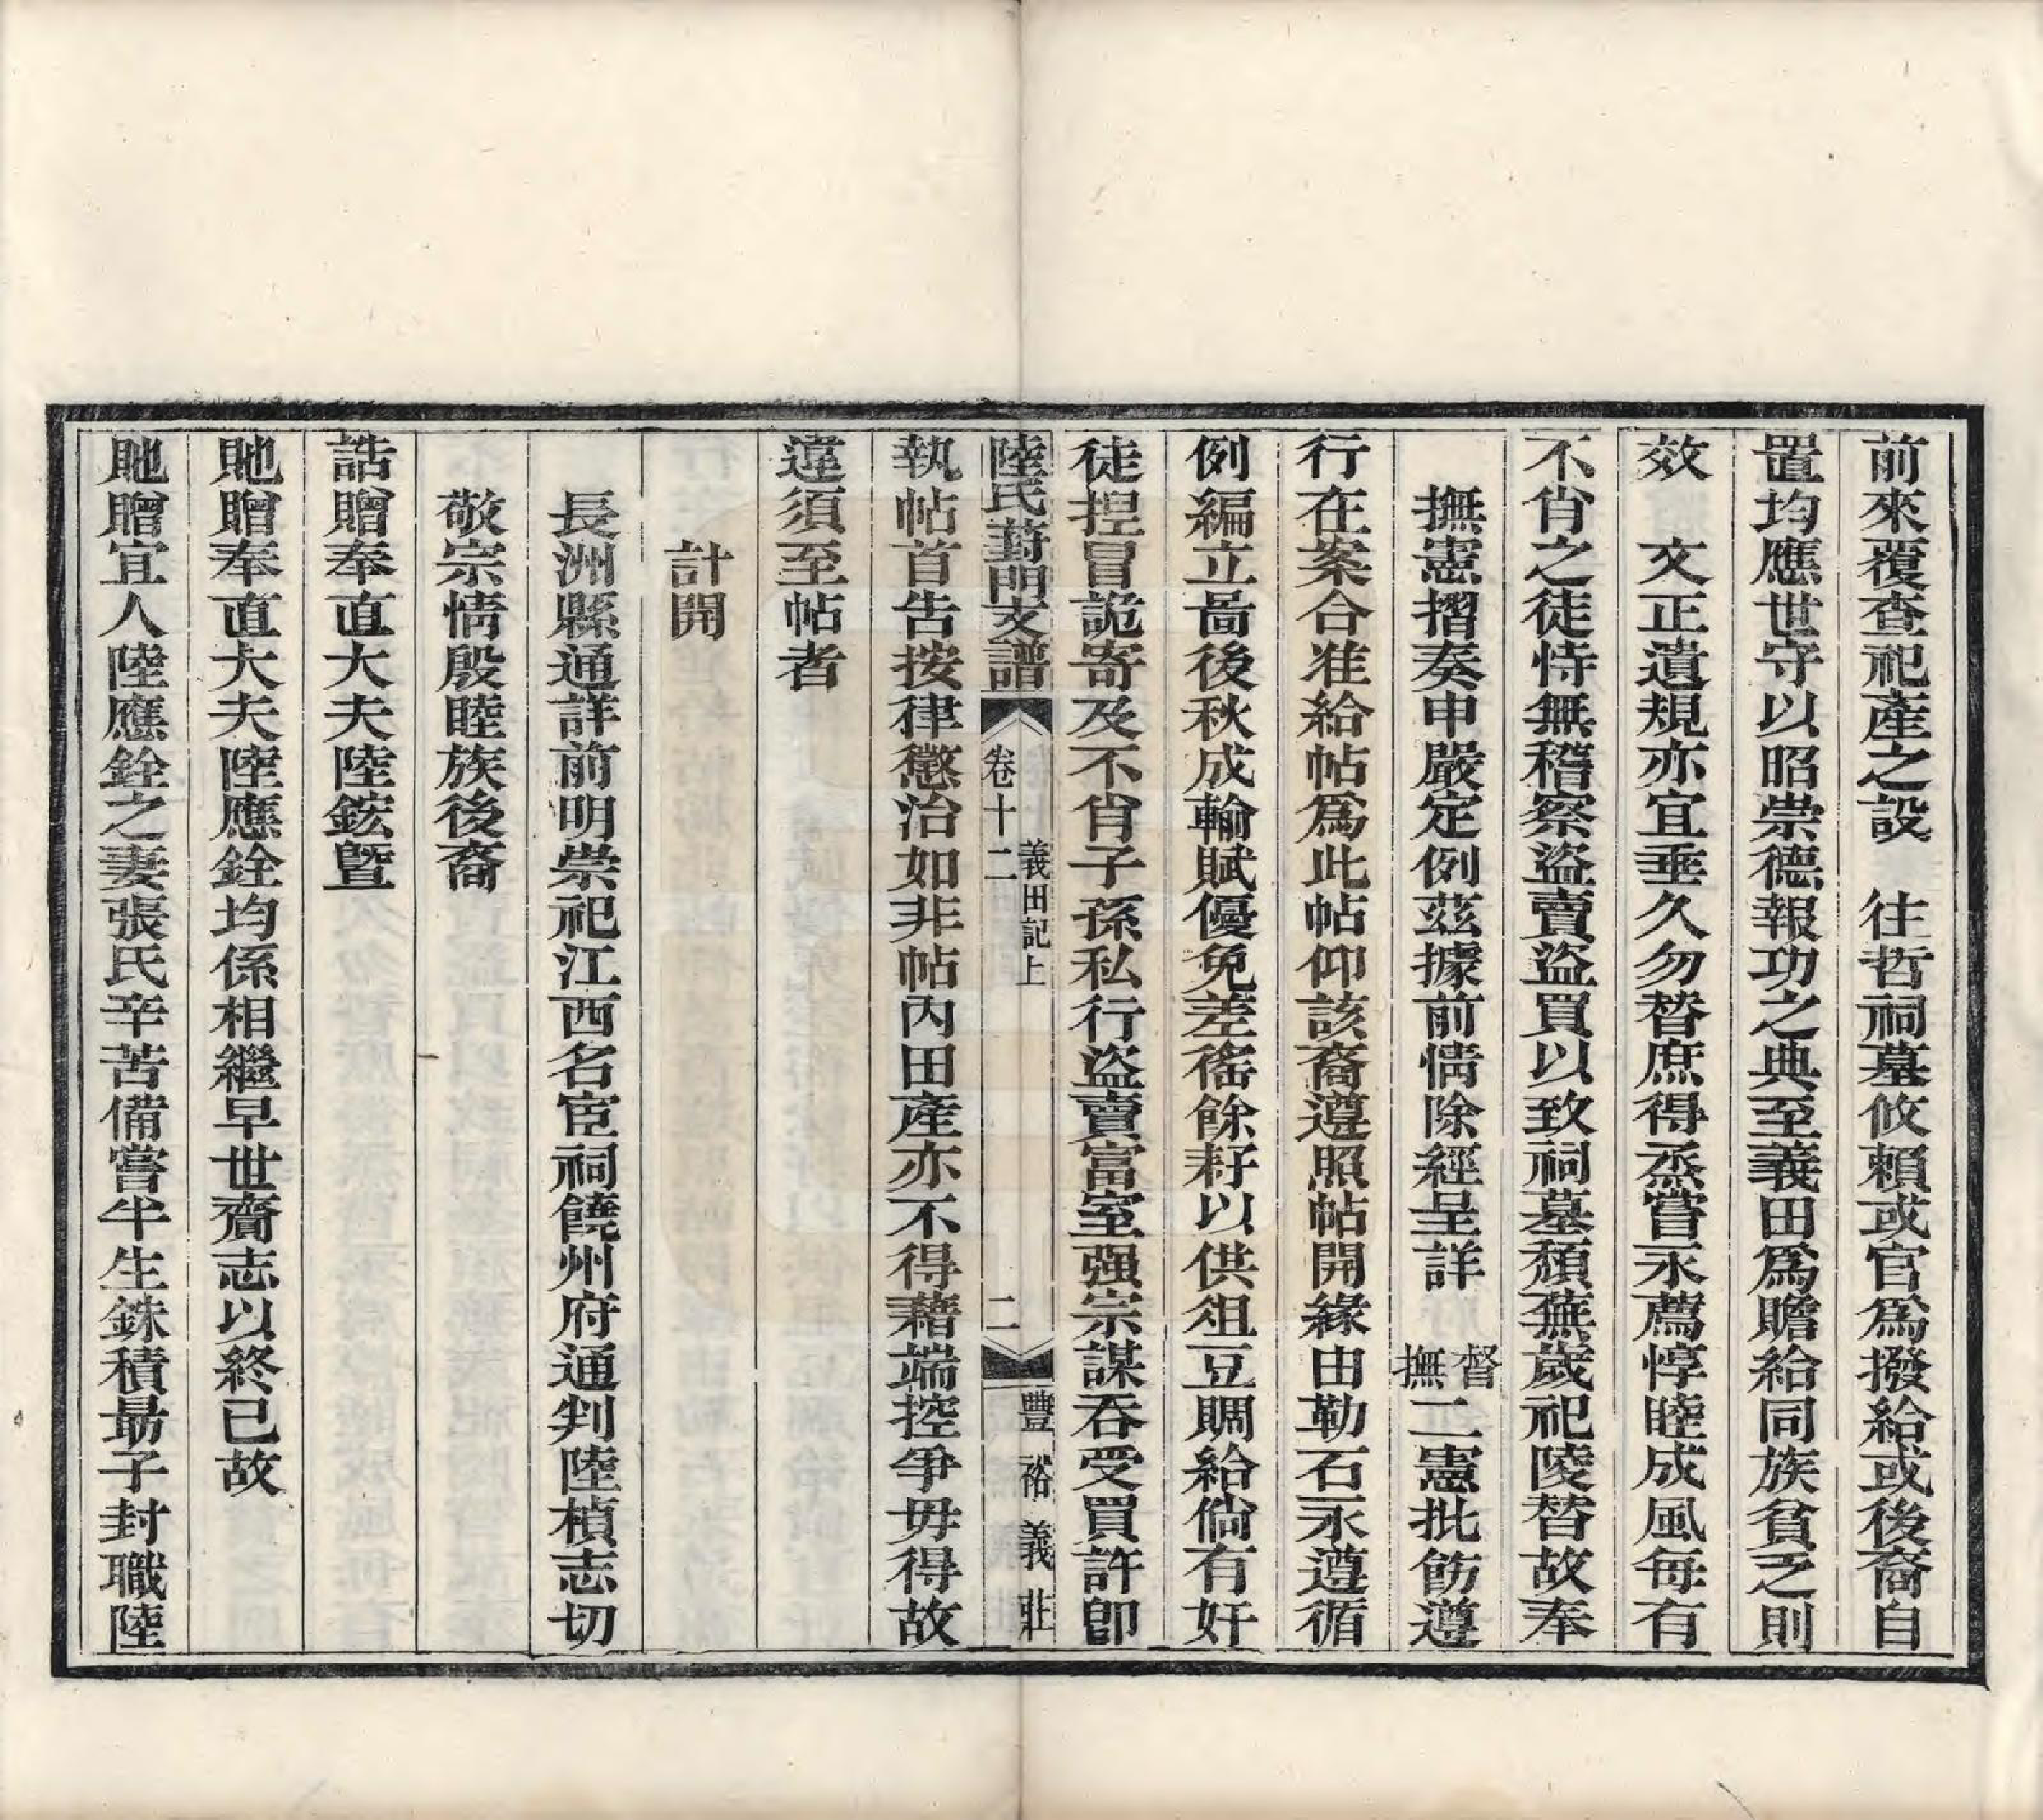 前來覆查祀產之設　往哲祠墓攸賴或官爲撥給或後裔自
置均應世守以昭崇德報功之典至義田爲贍給同族貧乏則
效　文正遺規亦宜垂久勿替庶得烝嘗永薦惇睦成風每有
不肖之徒恃無稽察盜賣盜買以致祠墓頹蕪歲祀陵替故奉
撫憲摺奏申嚴定例茲據前情除經呈詳督撫二憲批飭遵
行在案合准給帖爲此帖仰該裔遵照帖開緣由勒石永遵循
例編立啚後秋成輸賦優免差徭餘籽以供俎豆賙給倘有奸
徒揑冒詭寄及不肖子孫私行盜賣富室强宗謀吞受買許卽
陸氏葑門支譜　卷十二　義田記上　二　豐裕義莊
執帖首告按律懲治如非帖內田產亦不得藉端控爭毋得故
違須至帖者
計開
長洲縣通詳前明崇祀江西名宦祠饒州府通判陸楨志切
敬宗情殷睦族後裔
誥贈奉直大夫陸鋐曁
貤贈奉直大夫陸應銓均係相繼早世齎志以終已故
貤贈宜人陸應銓之妻張氏辛苦備嘗半生銖積勗子封職陸